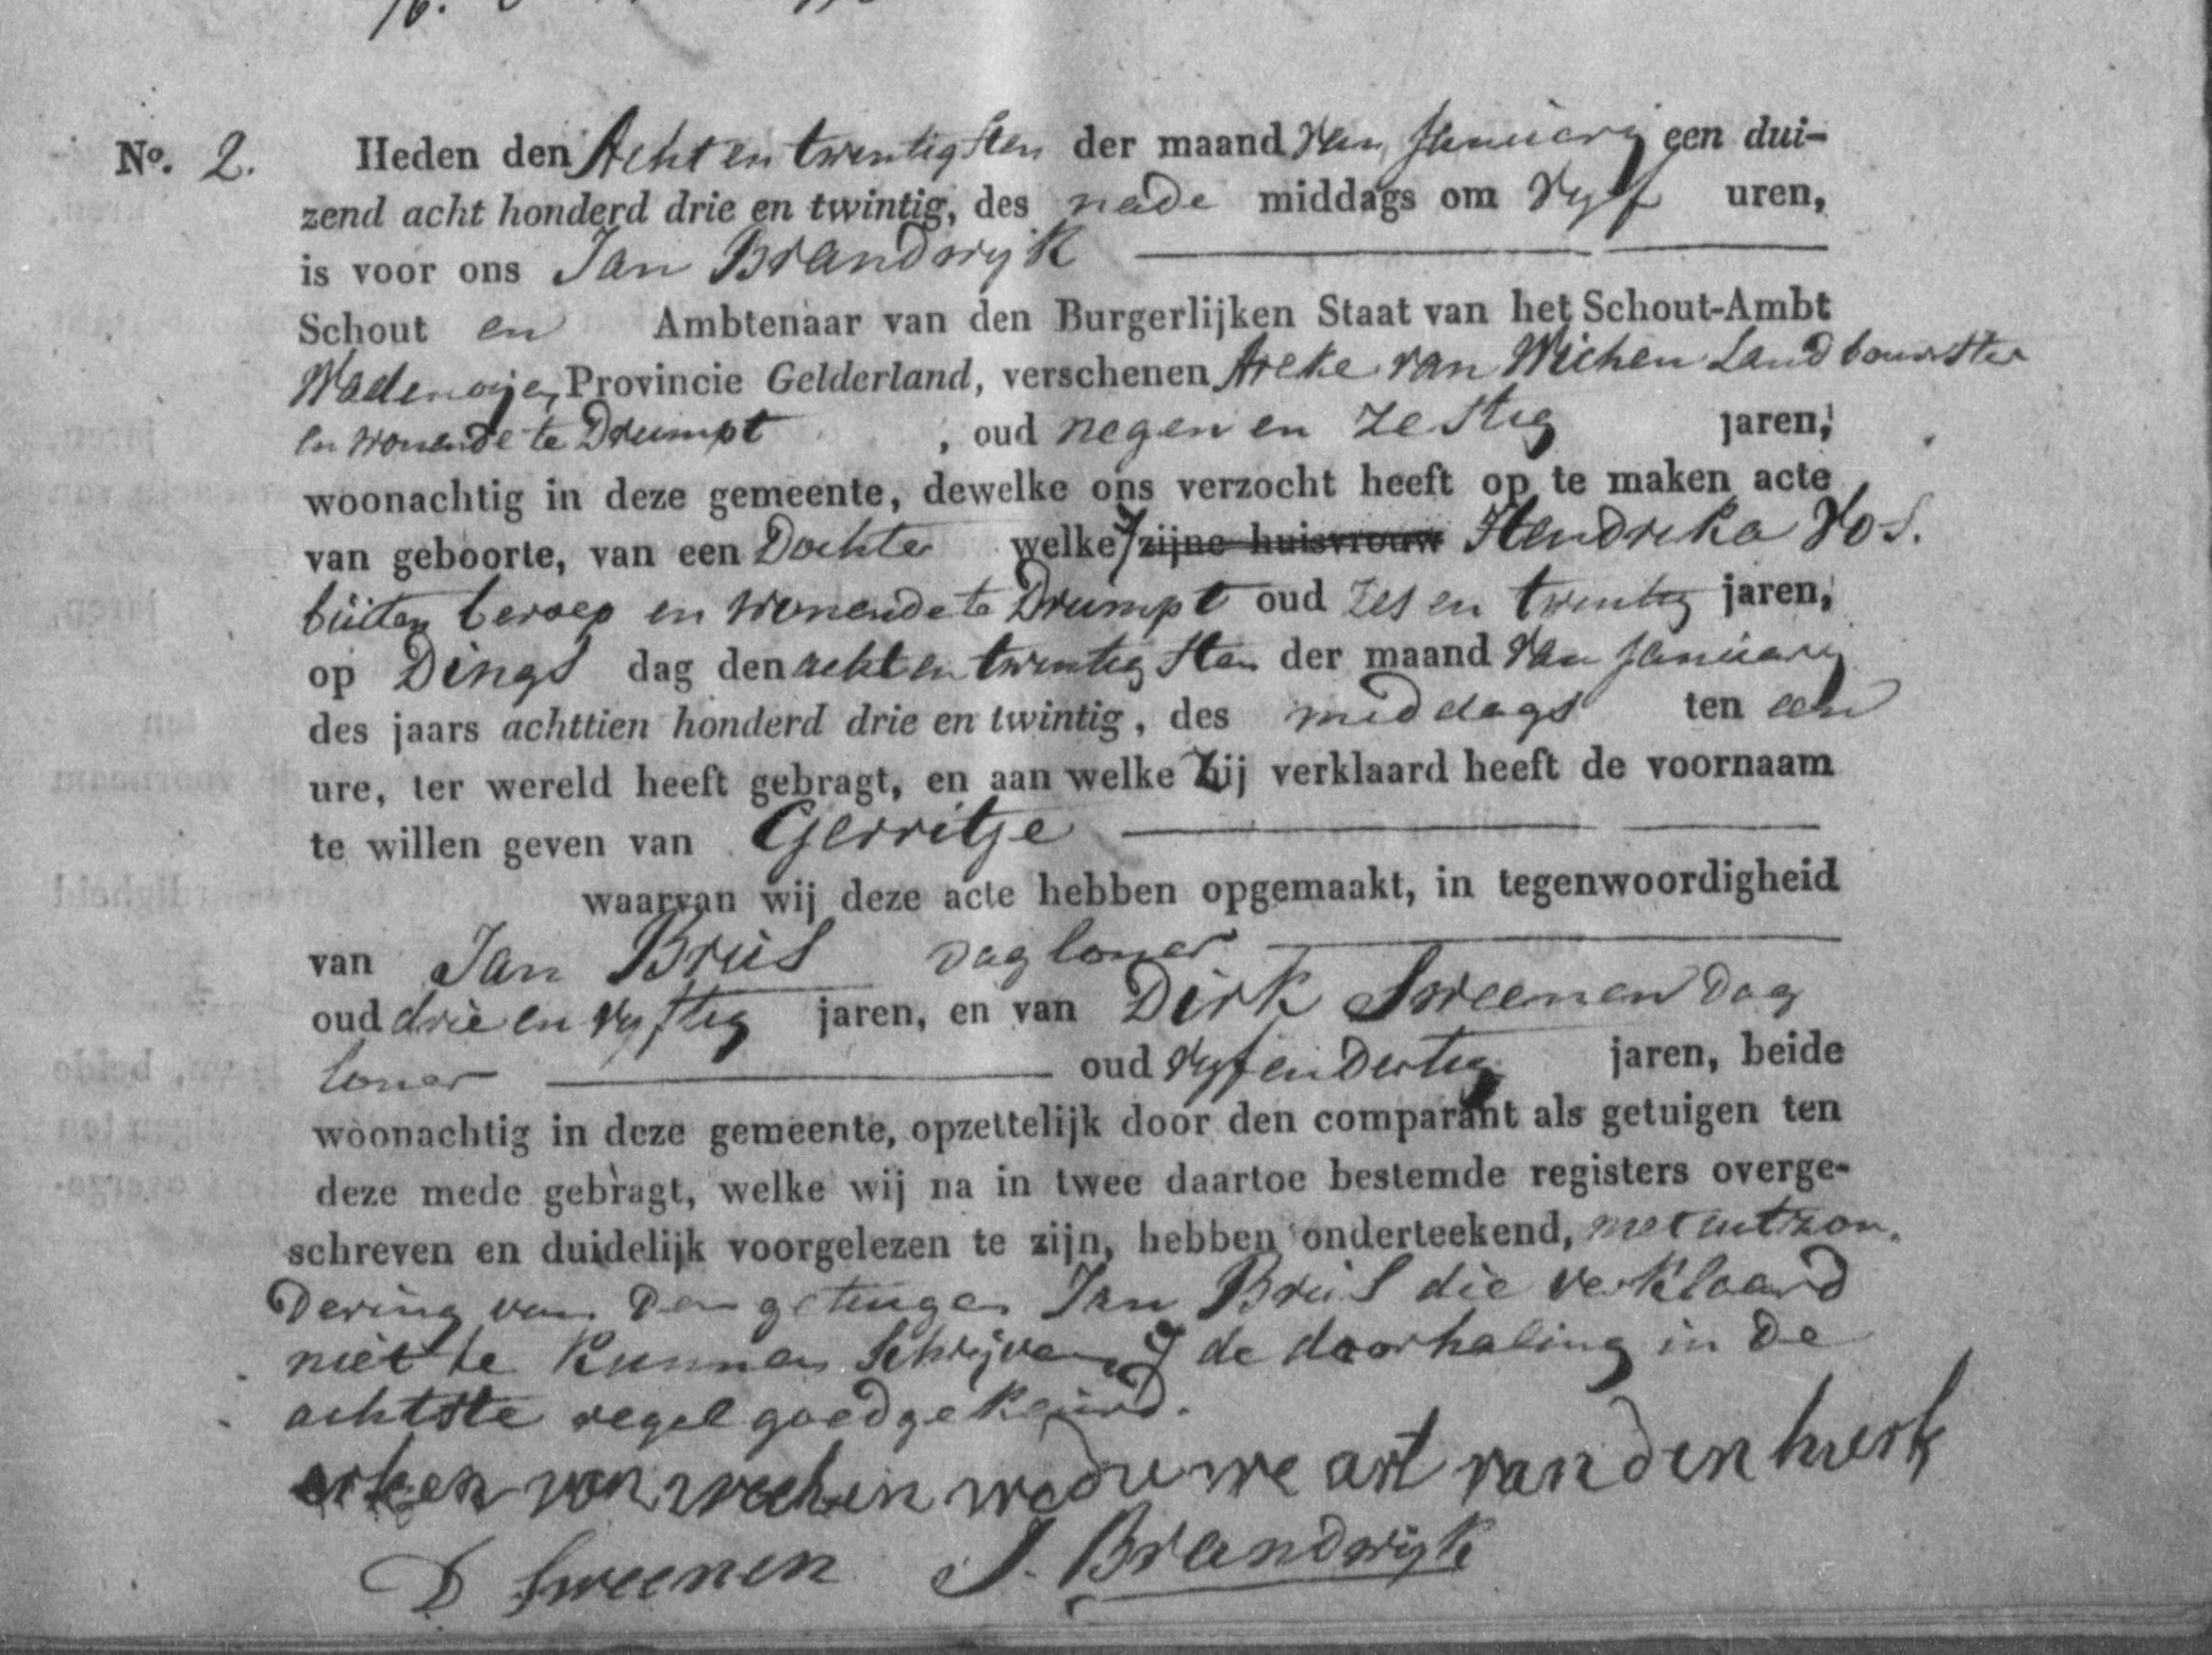 No. 2. Heden den Acht en twintigsten der maand van Januarij een dui-
zend acht honderd drie en twintig, des nade middags om vyf uren,
is voor ons Jan Brandwyk
Schout en Ambtenaar van den Burgerlijken Staat van het Schout-Ambt
Wadenoijen Provincie Gelderland, verschenen Areke van Wichen Landbouwster
en wonende te Drumpt, oud negen en zestig jaren,
woonachtig in deze gemeente, dewelke ons verzocht heeft op te maken acte
van geboorte, van een Dochter welke zijne huisvrouw Hendreka Vos.
buiten beroep en wonende te Drumpt oud zes en twintig jaren,
op Dings dag den acht en twintigsten der maand van Januarij
des jaars achttien honderd drie en twintig, des middags ten een
ure, ter wereld heeft gebragt, en aan welke Zij verklaard heeft de voornaam
te willen geven van Gerritje
waarvan wij deze acte hebben opgemaakt, in tegenwoordigheid
van Jan Brus dagloner
oud drie en vyftig jaren, en van Dirk Sweenen Dag
loner oud vyf en Dertig jaren, beide
woonachtig in deze gemeente, opzettelijk door den comparant als getuigen ten
deze mede gebragt, welke wij na in twee daartoe bestemde registers overge-
schreven en duidelijk voorgelezen te zijn, hebben onderteekend, met uitzon.
Dering van Den getuigen Jan Brus die verklaard
niet te kunnen Schrijven de doorhaling in De
achtste regel goedgekeurd.
van wechen weduwe art van den hverk
D Sweenen J. Brandwijk